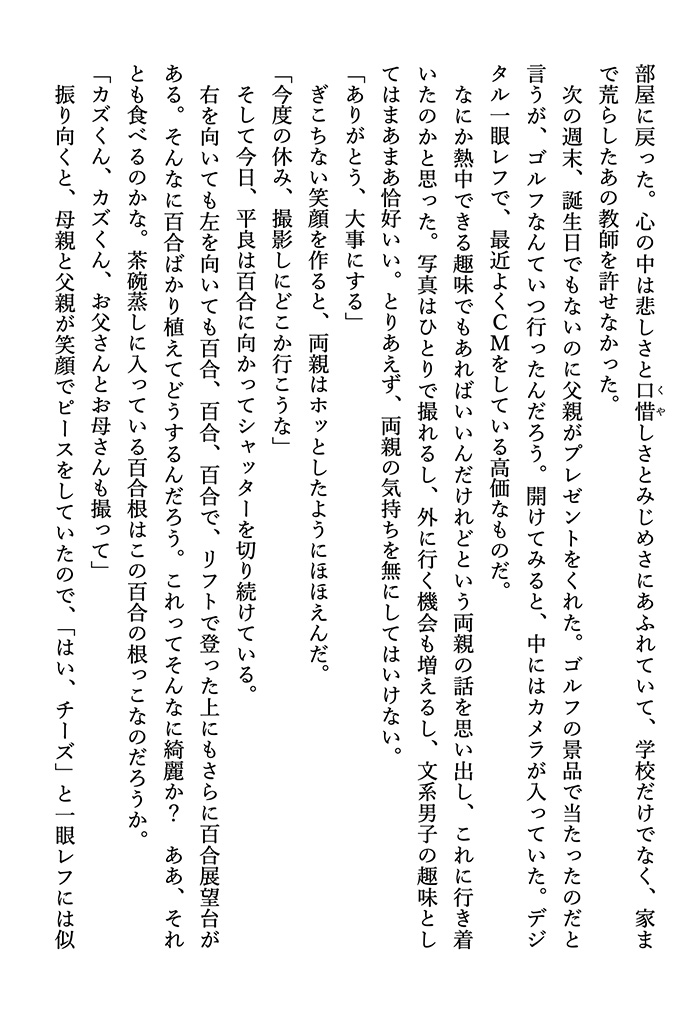 部屋に戻った。心の中は悲しさと口惜しさとみじめさにあふれていて、学校だけでなく、家ま
で荒らしたあの教師を許せなかった。
　次の週末、誕生日でもないのに父親がプレゼントをくれた。ゴルフの景品で当たったのだと
言うが、ゴルフなんていつ行ったんだろう。開けてみると、中にはカメラが入っていた。デジ
タル一眼レフで、最近よくＣＭをしている高価なものだ。
　なにか熱中できる趣味でもあればいいんだけれどという両親の話を思い出し、これに行き着
いたのかと思った。写真はひとりで撮れるし、外に行く機会も増えるし、文系男子の趣味とし
てはまあまあ恰好いい。とりあえず、両親の気持ちを無にしてはいけない。
「ありがとう、大事にする」
　ぎこちない笑顔を作ると、両親はホッとしたようにほほえんだ。
「今度の休み、撮影しにどこか行こうな」
　そして今日、平良は百合に向かってシャッターを切り続けている。
　右を向いても左を向いても百合、百合、百合で、リフトで登った上にもさらに百合展望台が
ある。そんなに百合ばかり植えてどうするんだろう。これってそんなに綺麗か？　ああ、それ
とも食べるのかな。茶碗蒸しに入っている百合根はこの百合の根っこなのだろうか。
「カズくん、カズくん、お父さんとお母さんも撮って」
　振り向くと、母親と父親が笑顔でピースをしていたので、「はい、チーズ」と一眼レフには似